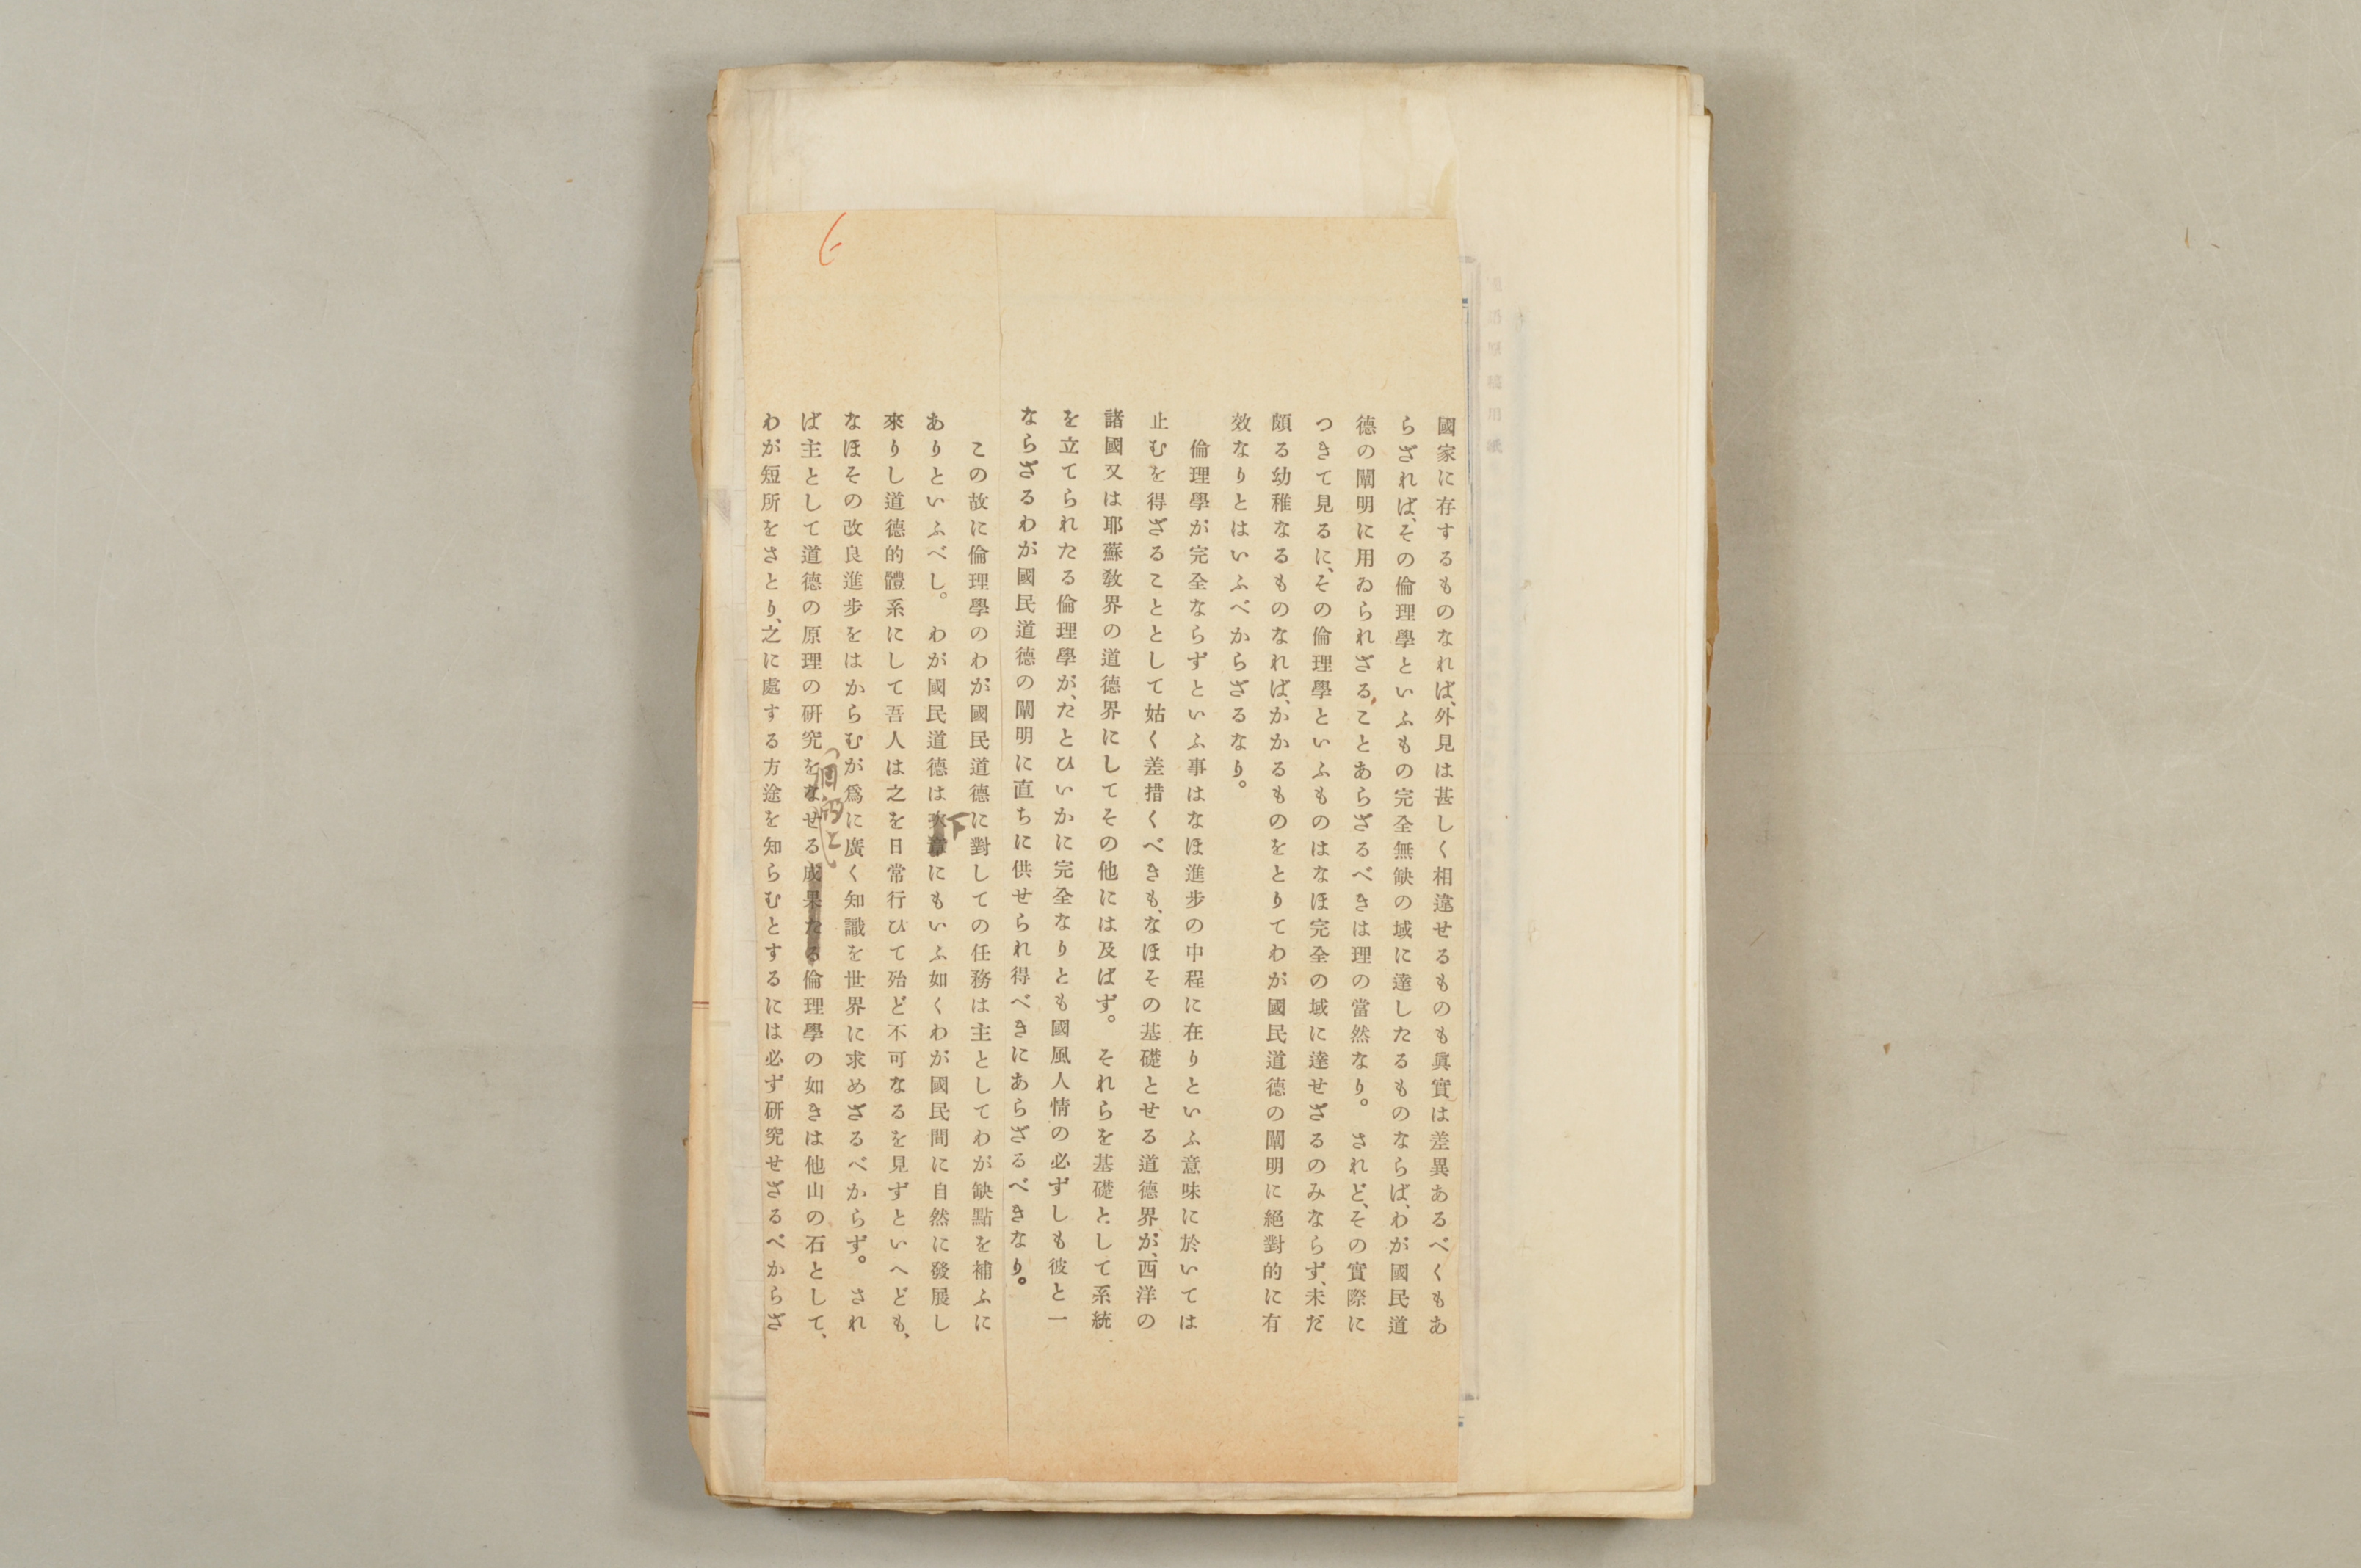 國家に存するものなれば、外見は甚しく相違せるものも眞實は差異あるべくもあ
らざれば、その倫理學といふもの完全無缺の域に達したるものならば、わが國民道
德の闡明に用ゐられざることあらざるべきは理の當然なり。されど、その實際に
つきて見るに、その倫理學といふものはなほ完全の域に達せざるのみならず、未だ
頗る幼稚なるものなれば、かかるものをとりてわが國民道德の闡明に絕對的に有
效なりとはいふべからざるなり。
倫理學が完全ならずといふ事はなほ進步の中程に在りといふ意味に於いては
止むを得ざることとして姑く差措くべきも、なほその基礎とせる道德界が、西洋の
諸國又は耶蘇敎界の道德界にしてその他には及ばず。それらを基礎として系統
を立てられたる倫理學が、たとひいかに完全なりとも國風人情の必ずしも彼と一
ならざるわが國民道德の闡明に直ちに供せられ得べきにあらざるべきなり。
この故に倫理學のわが國民道德に對しての任務は主としてわが缺點を補ふに
下
ありといふべし。わが國民道德は次章にもいふ如くわが國民間に自然に發展し
來りし道德的體系にして吾人は之を日常行ひて殆ど不可なるを見ずといへども、
なほその改良進步をはからむが爲に廣く知識を世界に求めざるべからず。され
ば主として道德の原理の硏究をなせる成果たる倫理學の如きは他山の石として、
わが短所をさとり、之に處する方途を知らむとするには必ず硏究せざるべからざ